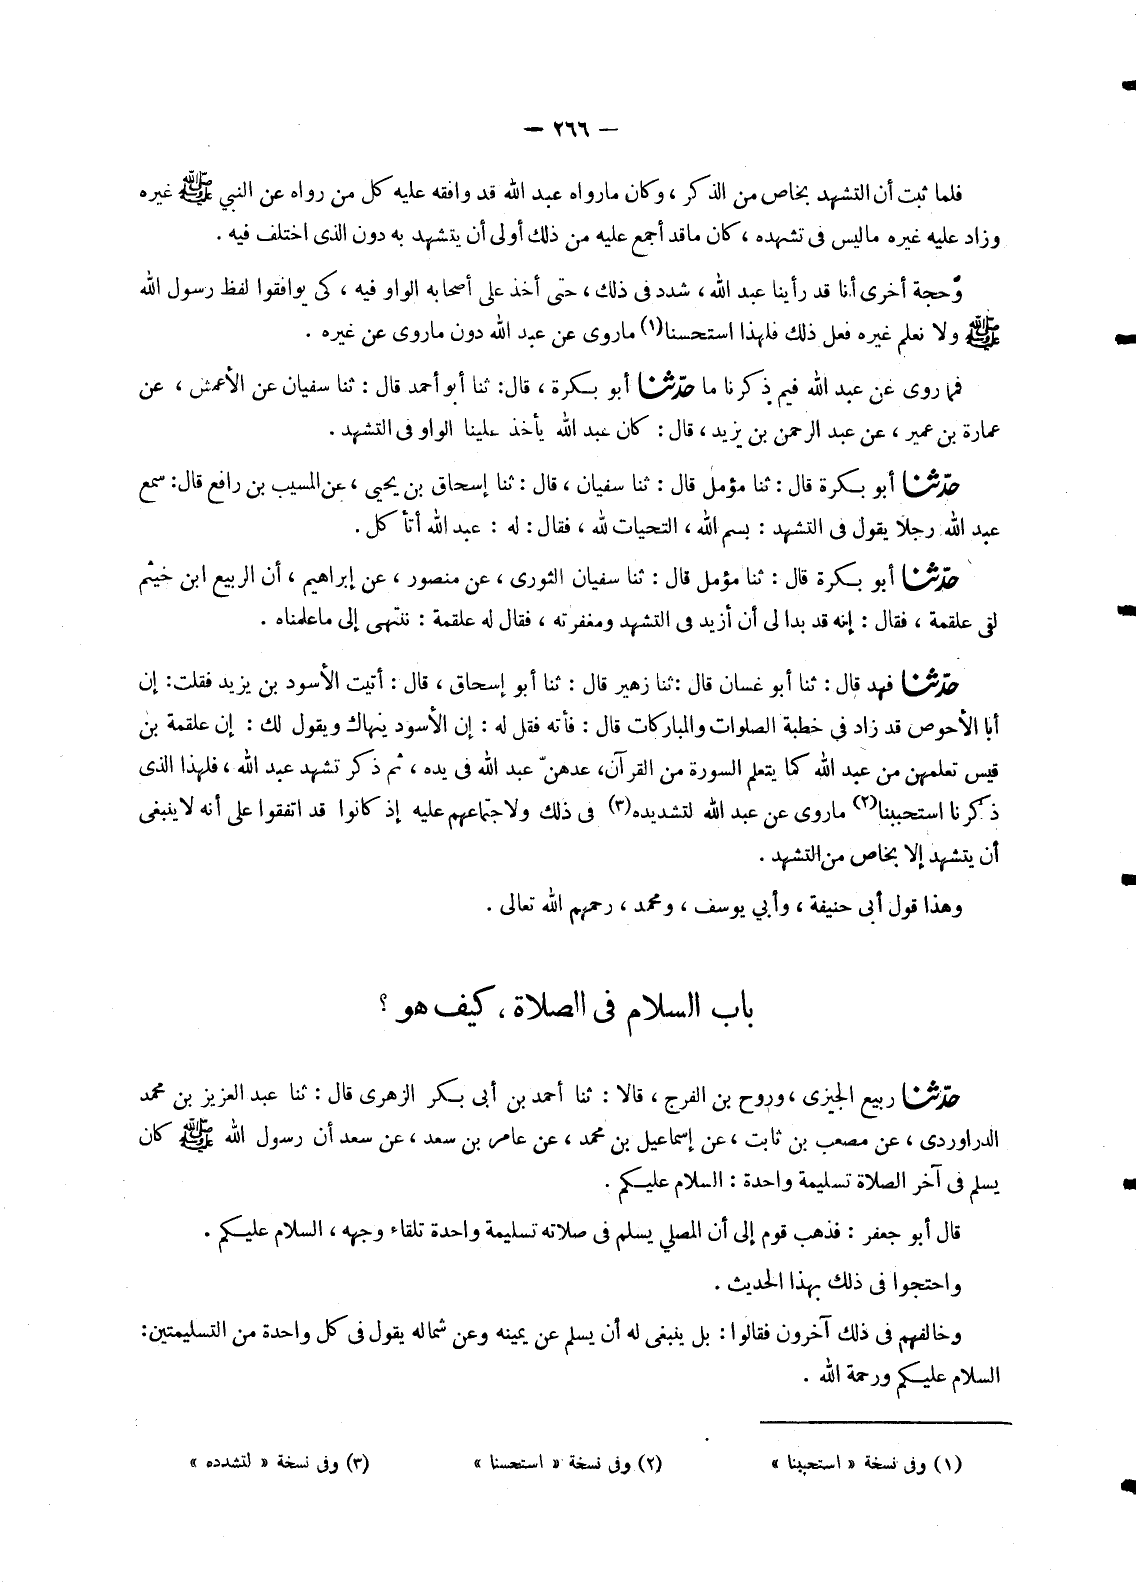 — ٢٦٦ —
فلما ثبت أن التشهد بخاص من الذكر ، وكان مارواه عبد الله قد وافقه عليه كل من رواه عن النبي ﷺ غيره
وزاد عليه غيره ماليس فى تشهده ، كان ماقد أجمع عليه من ذلك أولى أن يتشهد به دون الذى اختلف فيه .
وحجة أخرى أنا قد رأينا عبد الله ، شدد فى ذلك ، حتى أخذ على أصحابه الواو فيه ، كى يوافقوا لفظ رسول الله
ﷺ ولا نعلم غيره فعل ذلك فلهذا استحسنا(١) ماروى عن عبد الله دون ماروى عن غيره .
فما روى عن عبد الله فيم ذكرنا ما حدّثنا أبو بكرة ، قال: ثنا أبو أحمد قال : ثنا سفيان عن الأعمش ، عن
عمارة بن عمير ، عن عبد الرحمن بن يزيد ، قال : كان عبد الله يأخذ علينا الواو فى التشهد .
حدّثنا أبو بكرة قال : ثنا مؤمل قال : ثنا سفيان ، قال : ثنا إسحاق بن يحيى ، عن المسيب بن رافع قال: سمع
عبد الله رجلا يقول فى التشهد : بسم الله ، التحيات لله ، فقال : له : عبد الله أتأ كل .
حدّثنا أبو بكرة قال : ثنا مؤمل قال : ثنا سفيان الثورى ، عن منصور ، عن إبراهيم ، أن الربيع ابن خيثم
لقى علقمة ، فقال : إنه قد بدا لى أن أزيد فى التشهد ومغفرته ، فقال له علقمة : ننتهى إلى ماعلمناه .
حدّثنا فهد قال : ثنا أبو غسان قال :ثنا زهير قال : ثنا أبو إسحاق ، قال : أتيت الأسود بن يزيد فقلت: إن
أبا الأحوص قد زاد في خطبة الصلوات والمباركات قال : فأته فقل له : إن الأسود ينهاك ويقول لك : إن علقمة بن
قيس تعلمهن من عبد الله كما يتعلم السورة من القرآن، عدهنّ عبد الله فى يده ، ثم ذكر تشهد عبد الله ، فلهذا الذى
ذكرنا استحببنا(٢) ماروى عن عبد الله لتشديده(٣) فى ذلك ولاجتماعهم عليه إذ كانوا قد اتفقوا على أنه لاينبغى
أن يتشهد إلا بخاص من التشهد .
وهذا قول أبى حنيفة ، وأبي يوسف ، ومحمد ، رحمهم الله تعالى .
باب السلام فى الصلاة ، كيف هو ؟
حدّثنا ربيع الجيزى ، وروح بن الفرج ، قالا : ثنا أحمد بن أبى بكر الزهرى قال : ثنا عبد العزيز بن محمد
الدراوردى ، عن مصعب بن ثابت ، عن إسماعيل بن محمد ، عن عامر بن سعد ، عن سعد أن رسول الله ﷺ كان
يسلم فى آخر الصلاة تسليمة واحدة : السلام عليكم .
قال أبو جعفر : فذهب قوم إلى أن المصلي يسلم فى صلاته تسليمة واحدة تلقاء وجهه ، السلام عليكم .
واحتجوا فى ذلك بهذا الحديث .
وخالفهم فى ذلك آخرون فقالوا : بل ينبغى له أن يسلم عن يمينه وعن شماله يقول فى كل واحدة من التسليمتين:
السلام عليكم ورحمة الله .
(١) وفى نسخة « استحببنا » (٢) وفى نسخة « استحسنا » (٣) وفى نسخة « لتشدده »